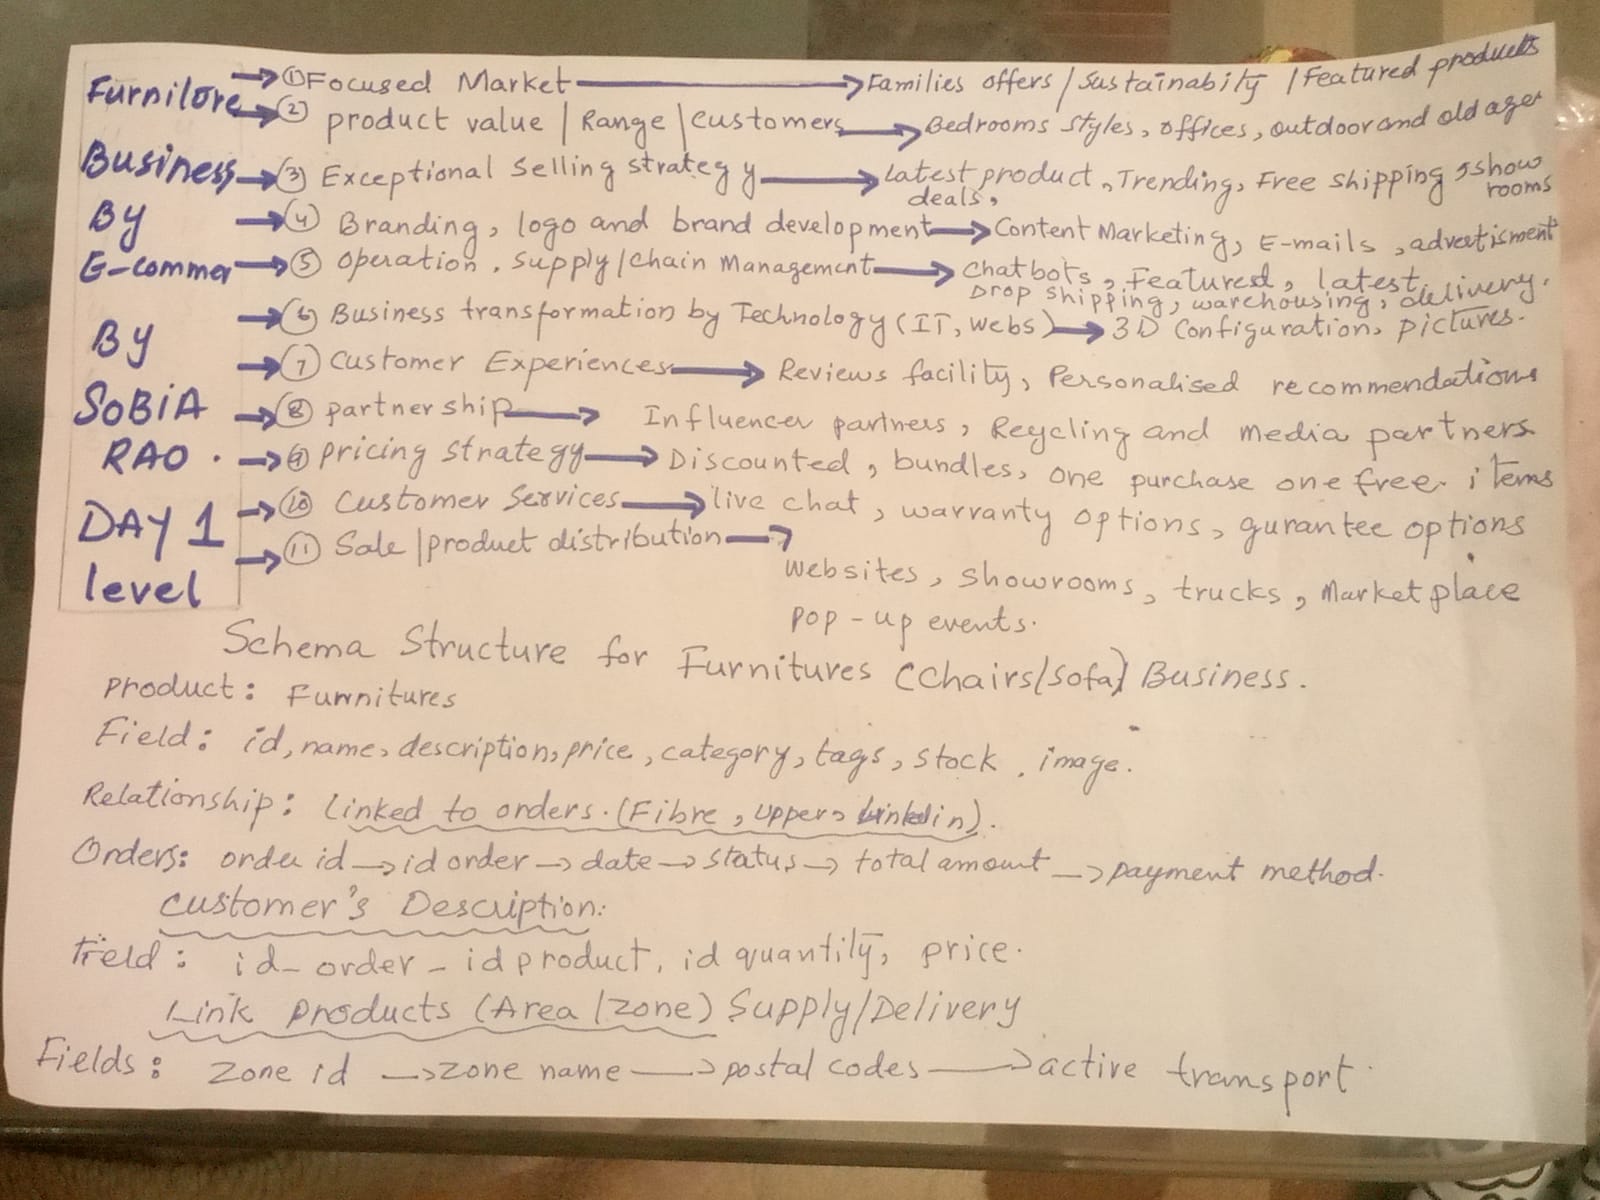 Furnilore
Business
By
E-commer
By
SOBIA
RAO.
DAY 1
level
→ ① Focused Market → Families offers / Sustainabity / Featured products
→ ② product value | Range | customers → Bedrooms styles, offices, outdoor and old ages
→ ③ Exceptional Selling strategy → Latest product, Trending, Free shipping, show rooms
deals,
→ ④ Branding, logo and brand development → Content Marketing, E-mails, advertisment
→ ⑤ operation, supply/chain Management → chatbots, Featured, latest,
Drop shipping, warehousing, delivery.
→ ⑥ Business transformation by Technology (IT, webs) → 3D Configuration, pictures.
→ ⑦ Customer Experiences → Reviews facility, Personalised recommendations
→ ⑧ partnership → Influencer partners, Recycling and media partners
→ ⑨ pricing strategy → Discounted, bundles, one purchase one free items
→ ⑩ Customer Services → live chat, warranty options, gurantee options
→ ⑪ Sale | product distribution →
websites, showrooms, trucks, Market place
pop-up events.
Schema Structure for Furnitures (Chairs/Sofa) Business.
Product: Furnitures
Field: id, name, description, price, category, tags, stock, image.
Relationship: Linked to orders. (Fibre, upper, Linkedin).
Orders: order id → id order → date → status → total amount → payment method.
Customer's Description:
Field: id-order - id product, id quantity, price.
Link products (Area / zone) Supply/Delivery
Fields: zone id → zone name → postal codes → active transport